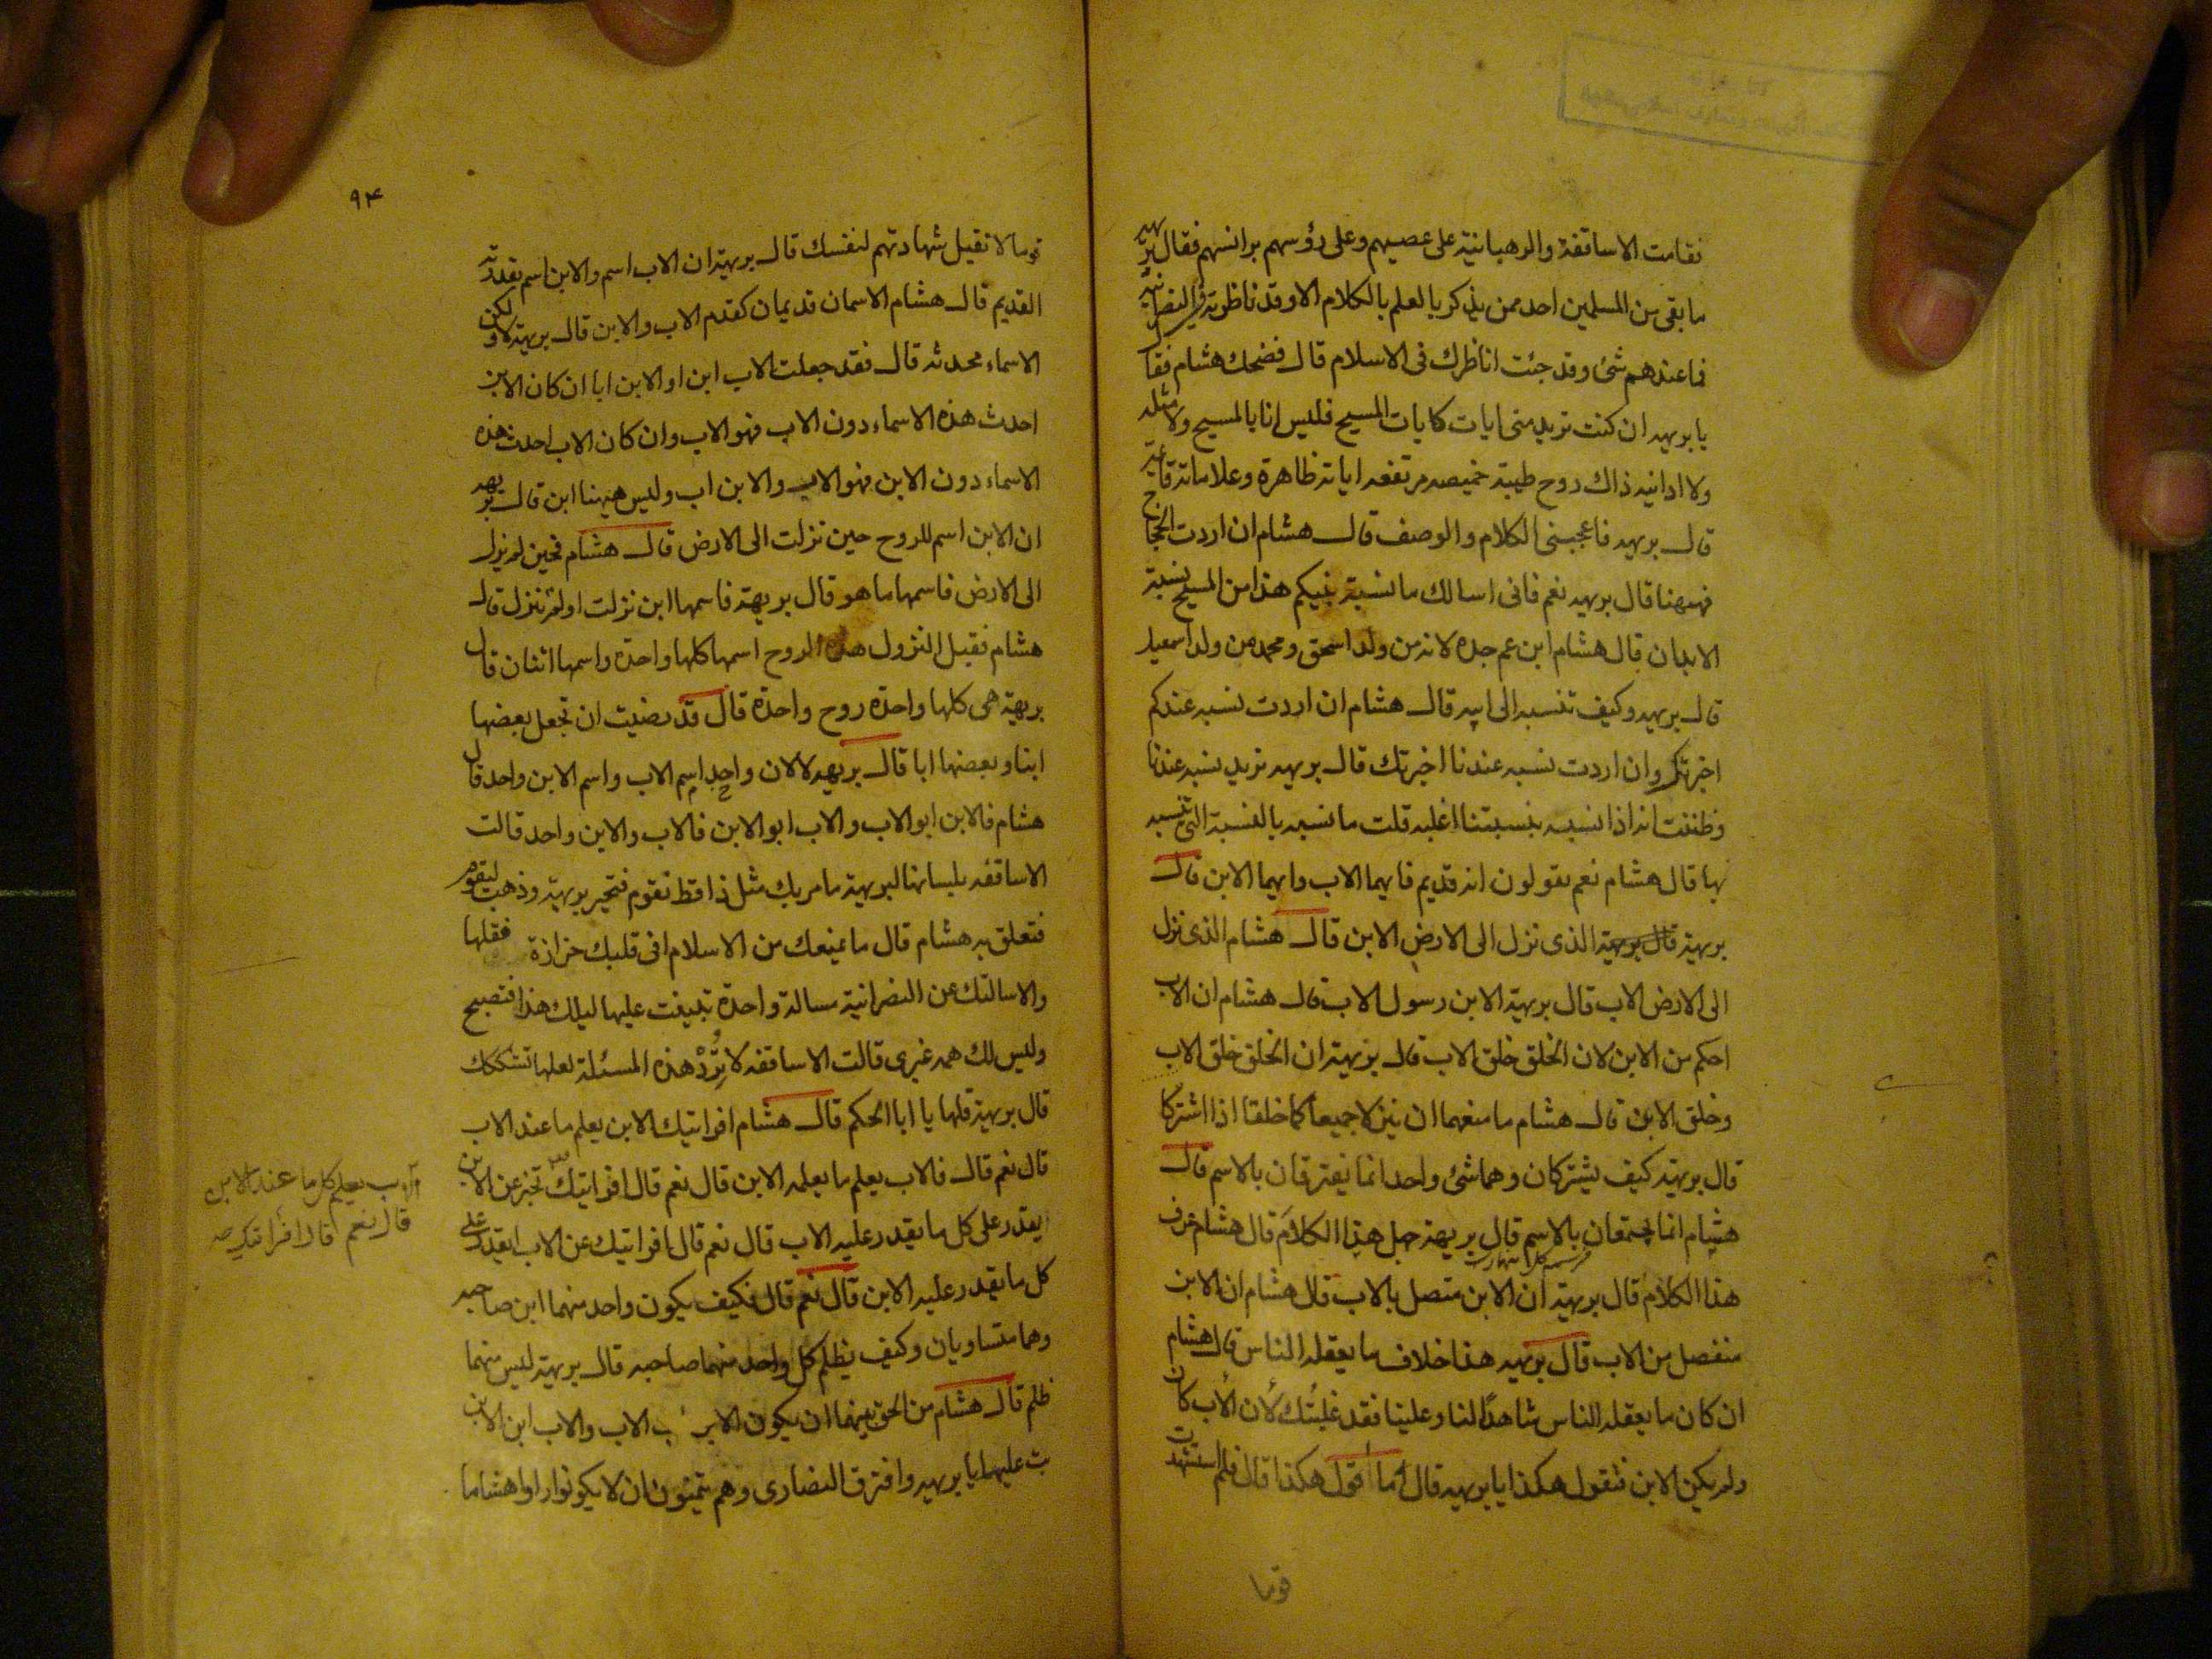 فقامت الاساقفة والرهبانية على عصيهم وعلى رؤسهم برانسهم فقال بريهه
ما بقى من المسلمين احد ممن يذكر بالعلم بالكلام الا وقد ناظرته فى النصرانية
فما عندهم شئ وقد جئت اناظرك فى الاسلام قال فضحك هشام فقال
يا بريهه ان كنت تريد منى ايات كايات المسيح فليس انا بالمسيح ولا مثله
ولا ادانيه ذاك روح طيبة خميصه مرتفعه اياته ظاهرة وعلاماته قائمة
قال بريهه فاعجبنى الكلام والوصف قال هشام ان اردت الحجاج
فههنا قال بريهه نعم فانى اسالك ما نسبة نبيكم هذا من المسيح نسبة
الابدان قال هشام ابن عم جده لانه من ولد اسحق ومحمد من ولد اسمعيل
قال بريهه وكيف تنسبه الى ابيه قال هشام ان اردت نسبه عندكم
اخبرتك وان اردت نسبه عندنا اخبرتك قال بريهه نريد نسبه عندنا
وظننت انه اذا نسبه بنسبتنا اغلبه قلت ما نسبه بالنسبة التى ننسبه
بها قال هشام نعم يقولون انه قديم فايهما الاب وايهما الابن قال
بريهة قال بريهة الذى نزل الى الارض الابن قال هشام الذى نزل
الى الارض الاب قال بريهة الابن رسول الاب قال هشام ان الاب
احكم من الابن لان الخلق خلق الاب قال بريهة ان الخلق خلق الاب
وخلق الابن قال هشام ما منعهما ان ينزلا جميعا كما خلقا اذا اشتركا
قال بريهة كيف يشتركان وهما شئ واحد انما يفترقان بالاسم قال
هشام انما يجتمعان بالاسم قال بريهة جهل هذا الكلام قال هشام عرف
هذا الكلام قال بريهة ان الابن متصل بالاب قال هشام ان الابن
منفصل من الاب قال بريهه هذا خلاف ما يعقله الناس قال هشام
ان كان ما يعقله الناس شاهدًا لنا وعلينا فقد غلبتك لان الاب كان
ولم يكن الابن فتقول هكذا يا بريهه قال ما اقول هكذا قال فلم استشهدت
قوما
٩٤
قوما لا تقبل شهادتهم لنفسك قال بريهة ان الاب اسم والابن اسم بقدرة
القديم قال هشام الاسمان قديمان كقدم الاب والابن قال بريهة لا ولكن
الاسماء محدثه قال فقد جعلت الاب ابن او الابن ابا ان كان الابن
احدث هذه الاسماء دون الاب فهو الاب وان كان الاب احدث هذه
الاسماء دون الابن فهو الاب والابن اب وليس ههنا ابن قال بريهه
ان الابن اسم للروح حين نزلت الى الارض قال هشام فحين لم ينزل
الى الارض فاسمها ما هو قال بريهة فاسمها ابن نزلت او لم تنزل قال
هشام فقبل النزول هذه الروح اسمها كلها واحدة واسمها اثنان قال
بريهة هى كلها واحدة روح واحدة قال قد رضيت ان تجعل بعضها
ابنا وبعضها ابا قال بريهه لا لان واحد اسم الاب واسم الابن واحد قال
هشام فالابن ابو الاب والاب ابو الابن فالاب والابن واحد قالت
الاساقفه بلسانها لبريهة ما مر بك مثل ذا قط تقوم فتحير بريهة وذهب ليقوم
فتعلق به هشام قال ما يمنعك من الاسلام افى قلبك حزازة فقلها
والا سالتك عن النصرانية مسالة واحدة تبيت عليها ليلك هذا فتصبح
وليس لك همه غيرى قالت الاساقفه لا تُرِدْ هذه المسئلة لعلها تشككك
قال بريهة قلها يا ابا الحكم قال هشام افرايتك الابن يعلم ما عند الاب
قال نعم قال فالاب يعلم ما يعلمه الابن قال نعم قال افرايتك تخبر عن الابن
ايقدر على كل ما يقدر عليه الاب قال نعم قال افرايتك عن الاب ايقدر على
كل ما يقدر عليه الابن قال نعم قال فكيف يكون واحد منهما ابن صاحبه
وهما متساويان وكيف يظلم كل واحد منهما صاحبه قال بريهة ليس منهما
ظلم قال هشام من الحق بينهما ان يكون الابن ب الاب والاب ابن الابن
بت عليهما يا بريهه وافترق النصارى وهم يتمنون ان لا يكونوا راوا هشاما
الاب يعلم كل ما عند الابن
قال نعم قال افرايتك